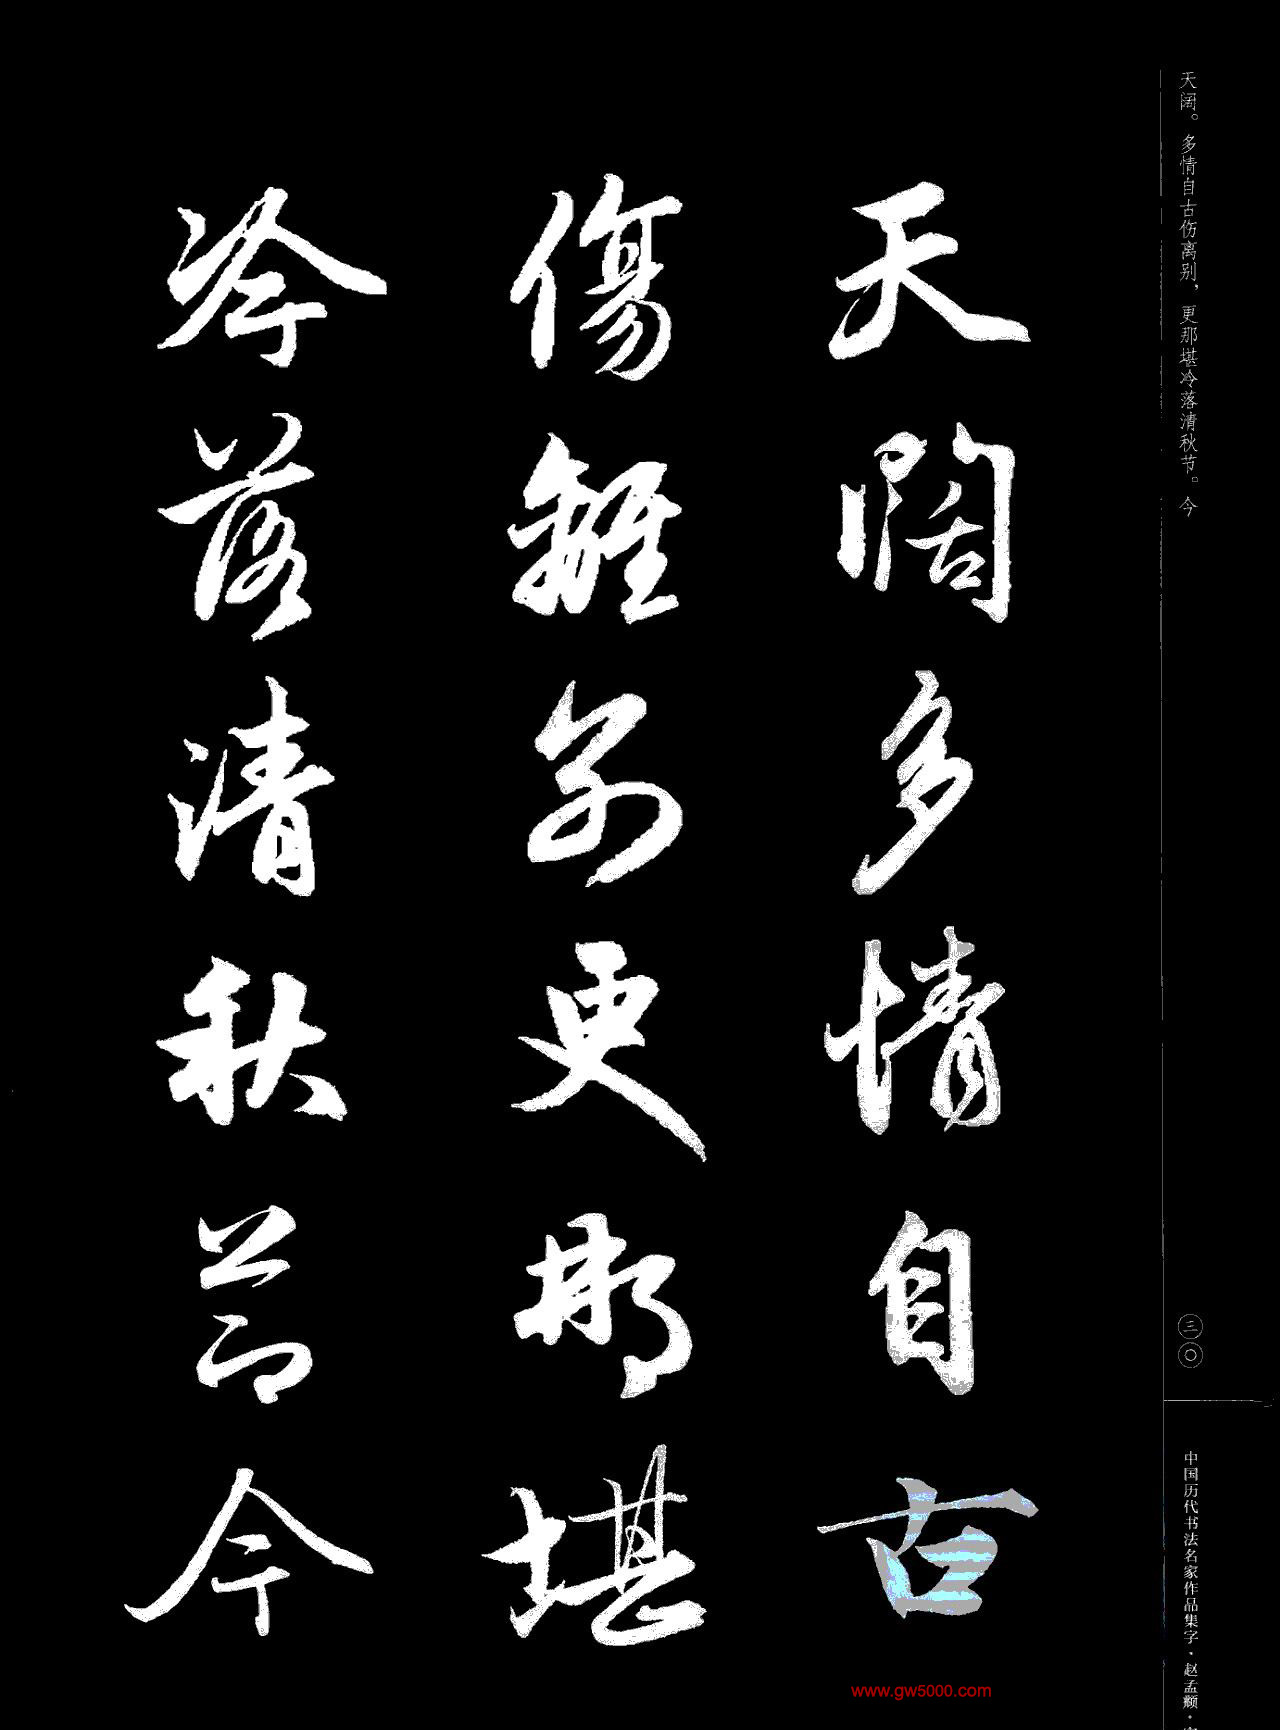 天阔。多情自古伤离别，更那堪冷落清秋节。今
三〇
中国历代书法名家作品集字·赵孟頫·
天闊多情自古
傷離别更那堪
冷落清秋節今
www.gw5000.com